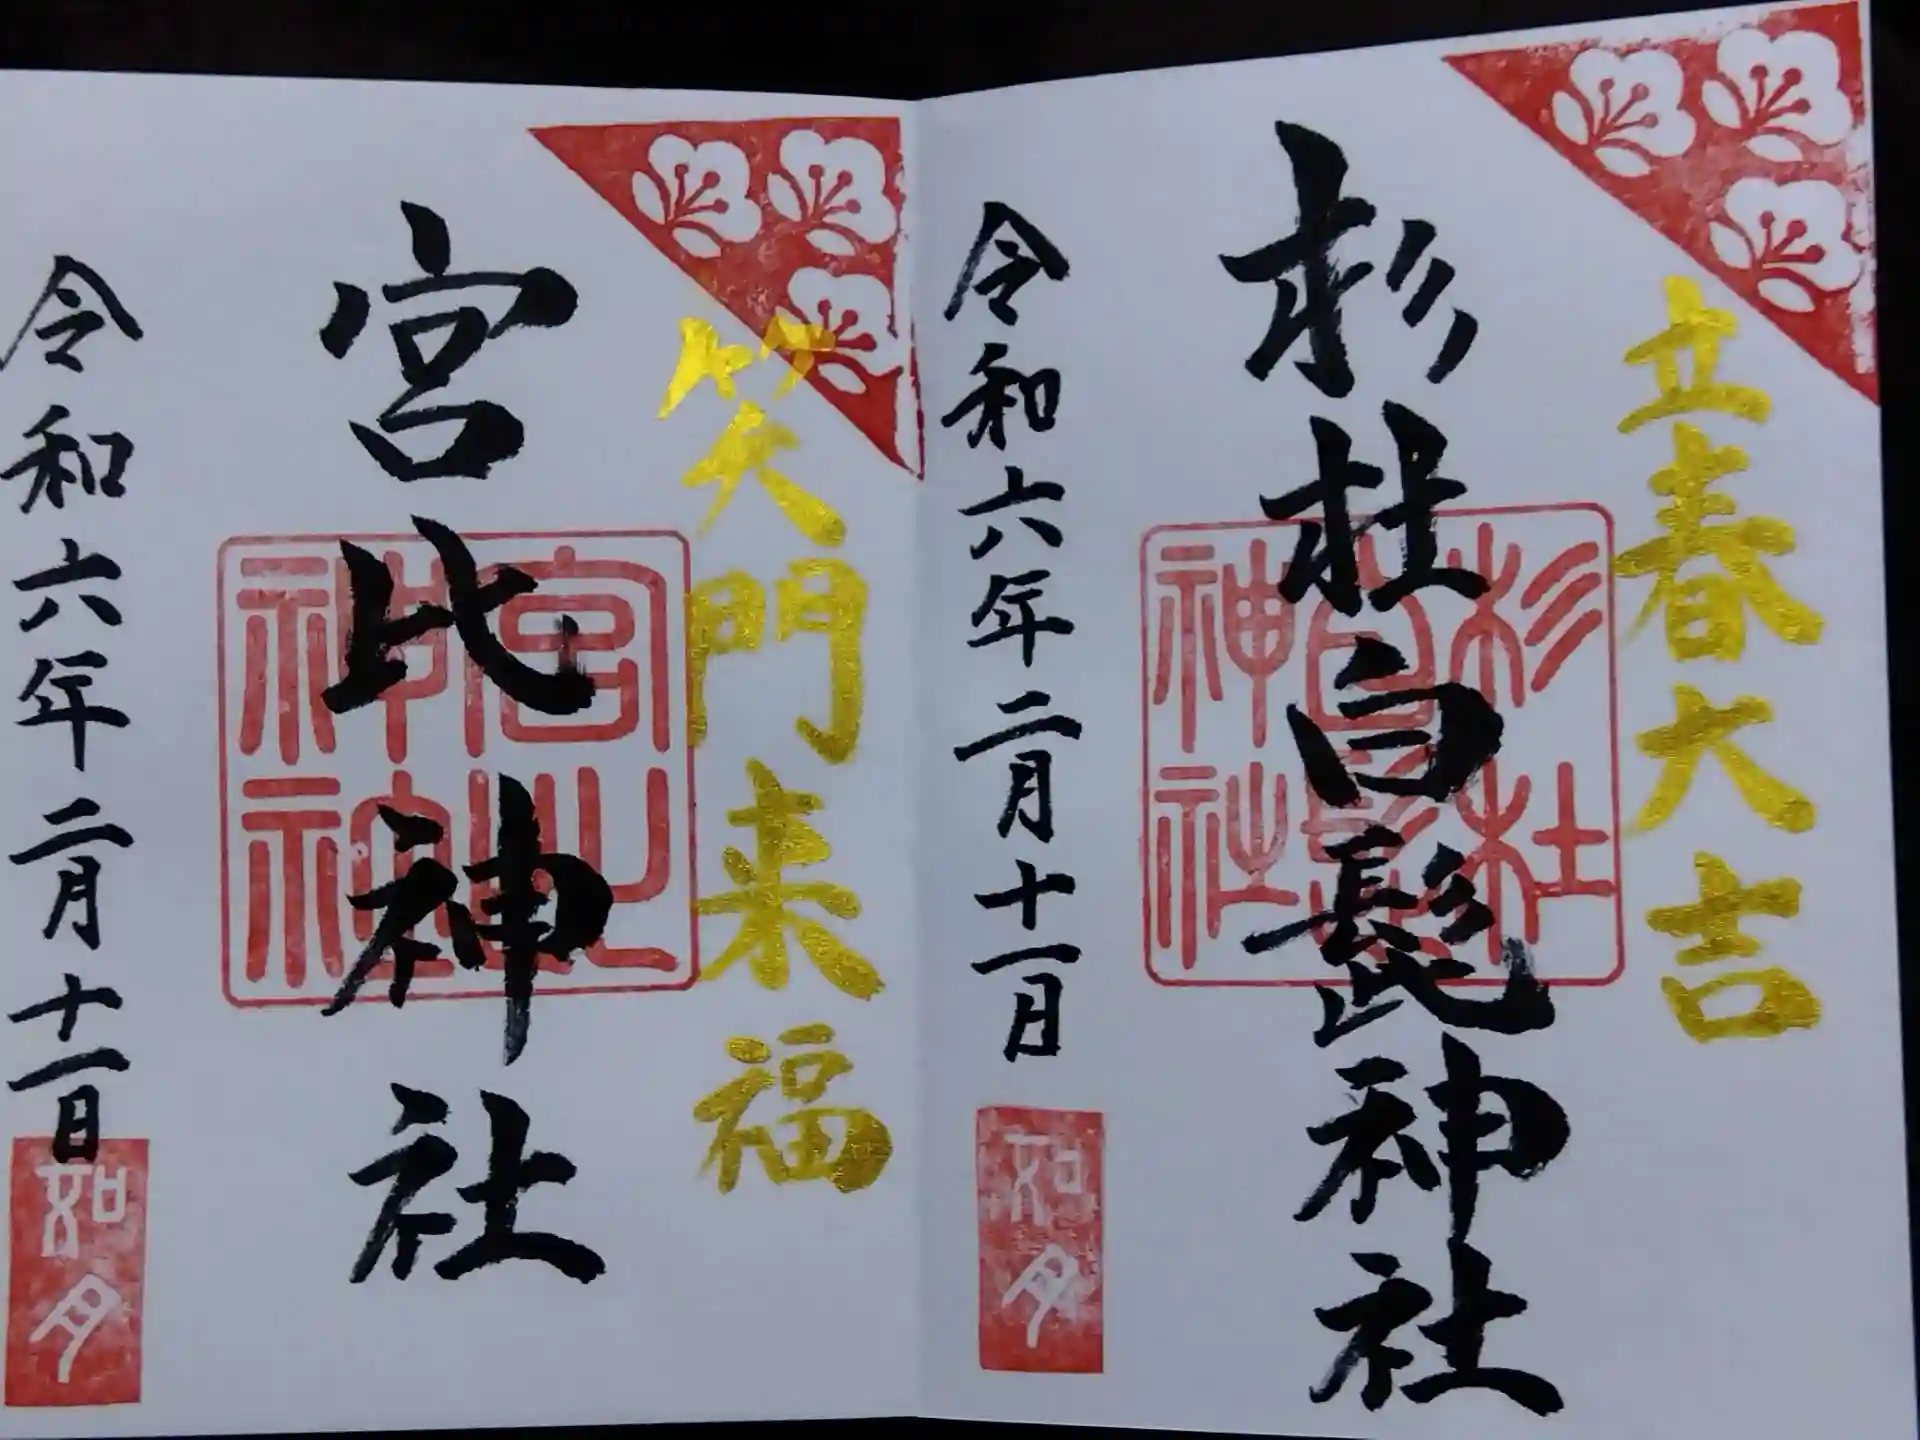 立春大吉
杉杜白髭神社
杉杜
白髭
神社
令和六年二月十一日
如月
笑門来福
宮比神社
宮比
神社
令和六年二月十一日
如月